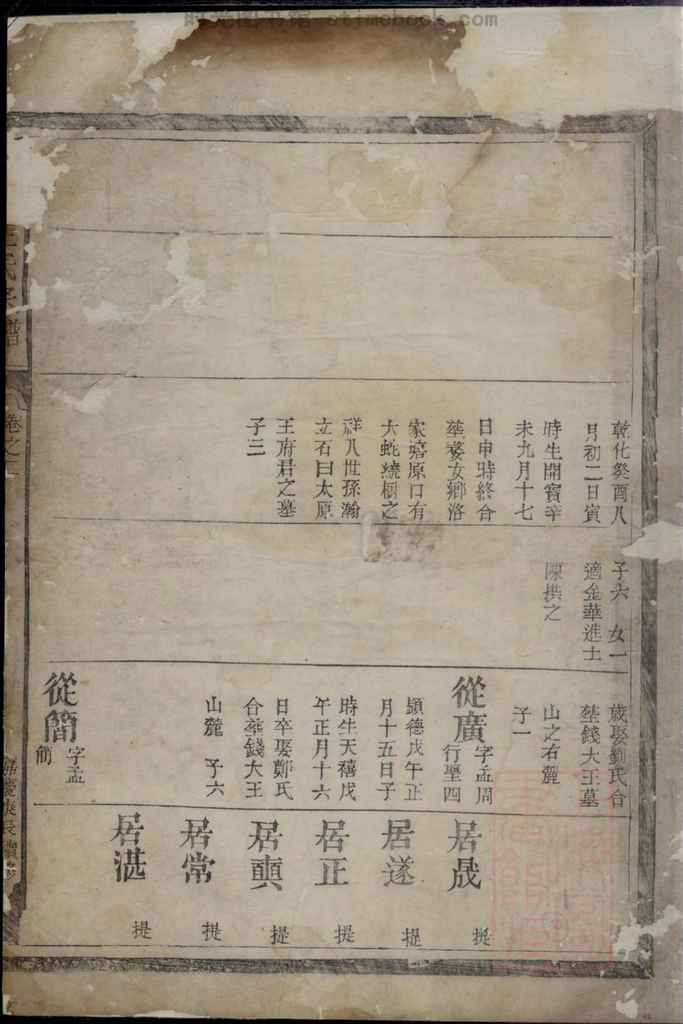 时光图书馆 stimebook.com
乾化癸酉八
月初二日寅
時生開寳辛
未九月十七
日申時終合
塟婺女鄉洛
家嶺原口有
大蛇繞樹之
祥八世孫瀚
立石曰太原
王府君之墓
子三
子六 女一
適金華進士
陳撰之
歲娶劉氏合
塟錢大王墓
山之右麓
子一
從廣 字孟周
行聖四
顯德戊午正
月十五日子
時生天禧戊
午正月十六
日卒娶鄭氏
合塟錢大王
山麓 子六
從簡 字孟
簡
居晟 提
居遂 提
居正 提
居奭 提
居常 提
居湛 提
氏宗譜
卷之